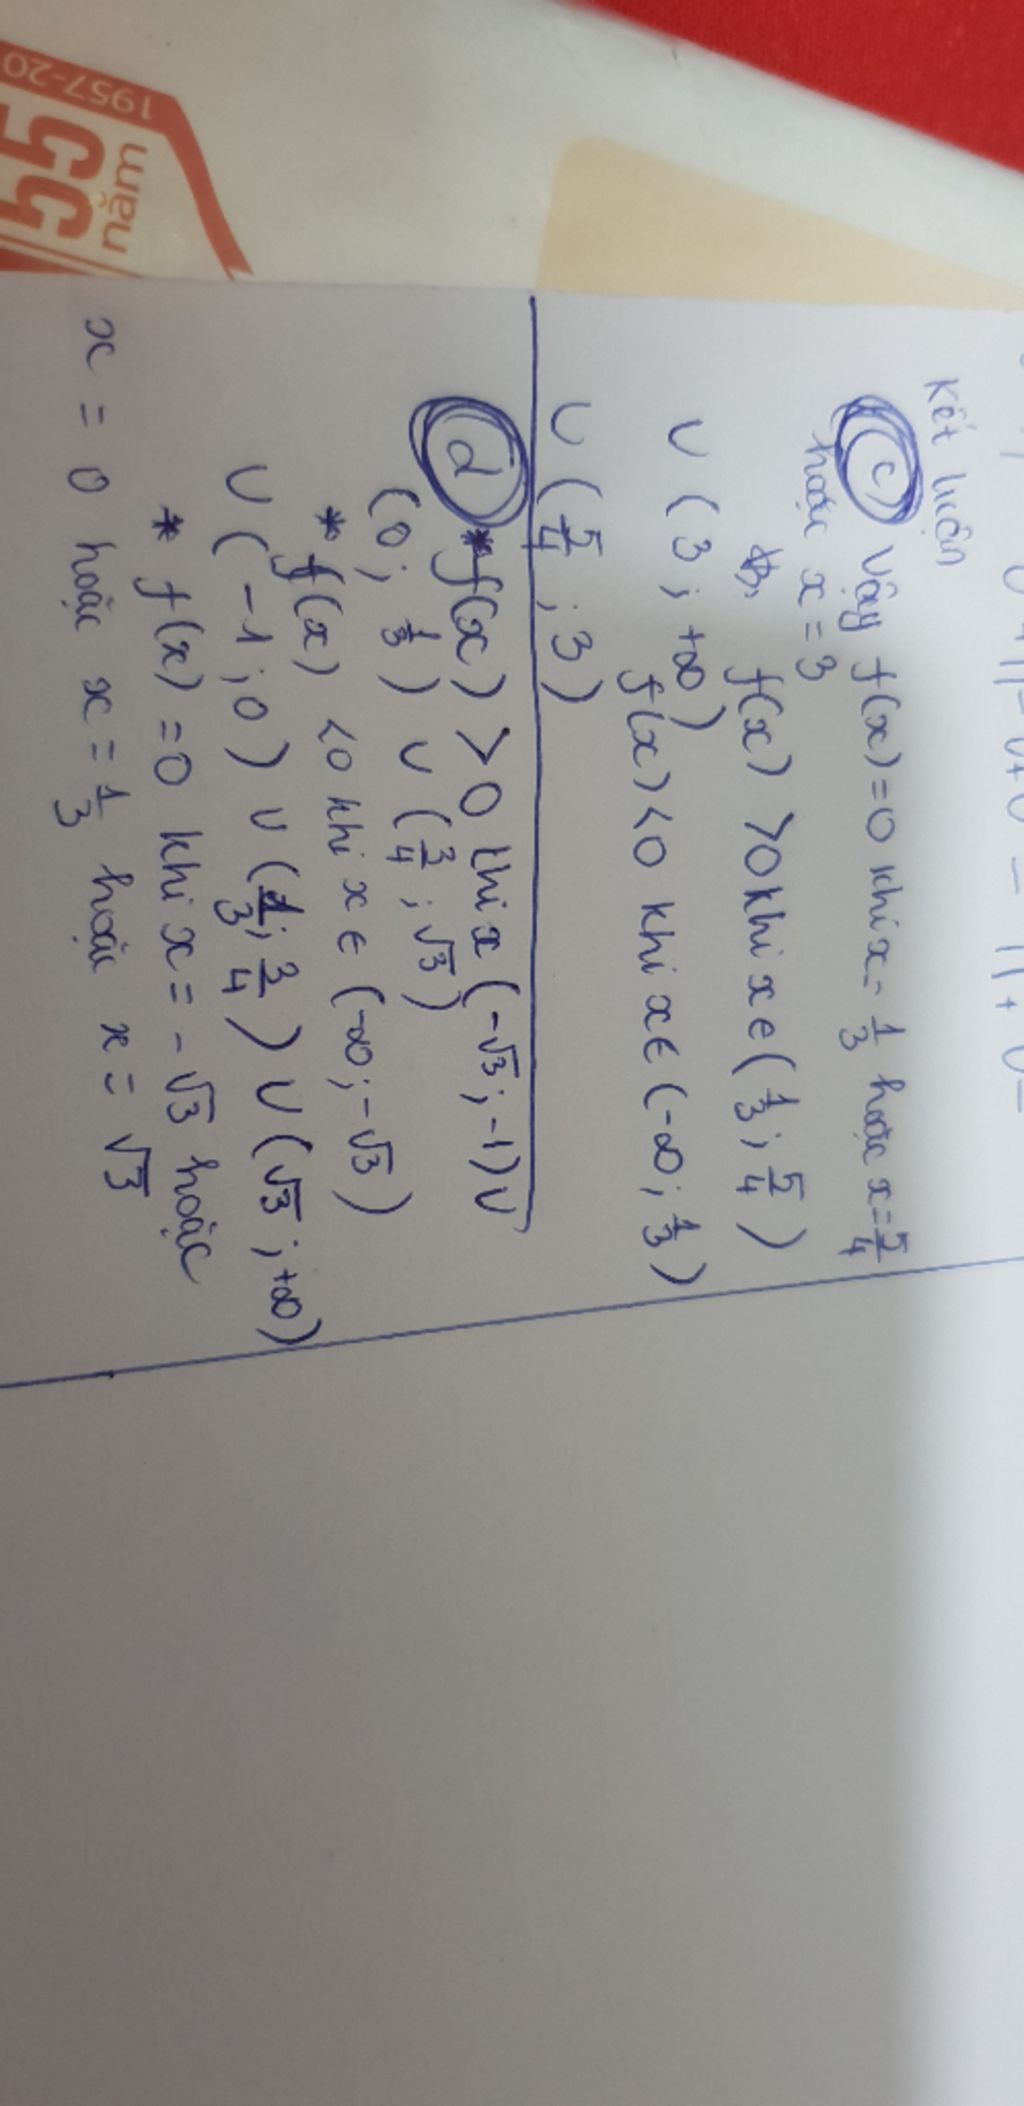 1957-20
55
năm
Kết luận
c) Vậy f(x) = 0 khi x = 1/3 hoặc x = 5/4
hoặc x = 3
f(x) > 0 khi x ∈ (1/3 ; 5/4)
∪ (3 ; +∞)
f(x) < 0 khi x ∈ (-∞ ; 1/3)
∪ (5/4 ; 3)
d * f(x) > 0 khi x (-√3 ; -1) ∪
(0 ; 1/3) ∪ (3/4 ; √3)
* f(x) < 0 khi x ∈ (-∞ ; -√3)
∪ (-1 ; 0) ∪ (1/3 ; 3/4) ∪ (√3 ; +∞)
* f(x) = 0 khi x = -√3 hoặc
x = 0 hoặc x = 1/3 hoặc x = √3